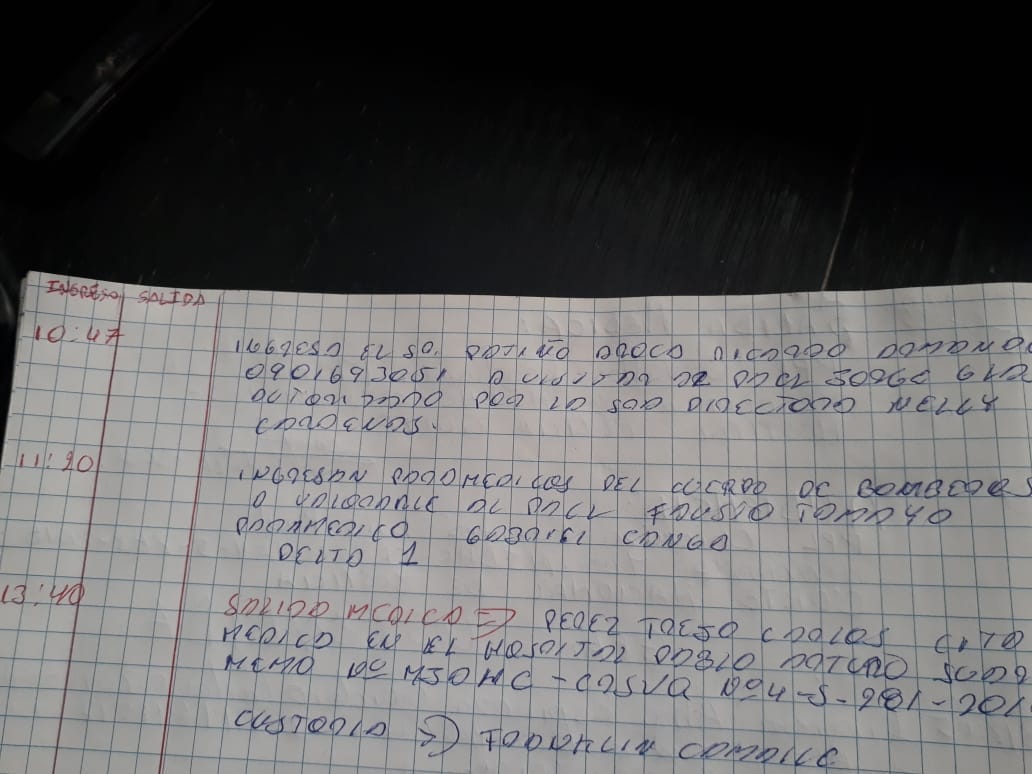 INGRESO SALIDA
10:47 INGRESA EL SR. PATIÑO AROCA RICARDO
0901693051 A VISITAR AL PPL JORGE GLA
AUTORIZADO POR LA SRA DIRECTORA NELLY
CARDENAS.
11:20 INGRESAN PARAMEDICOS DEL CUERPO DE BOMBEROS
A VALORARLE AL PPL FAUSTO TAMAYO
PARAMEDICO GABRIEL CANGO
DELTA 1
13:40 SALIDA MEDICA => PEREZ TOESO CARLOS CITA
MEDICA EN EL HOSPITAL PABLO ARTURO SUAR
MEMO Nº
CUSTODIA => FRANKLIN